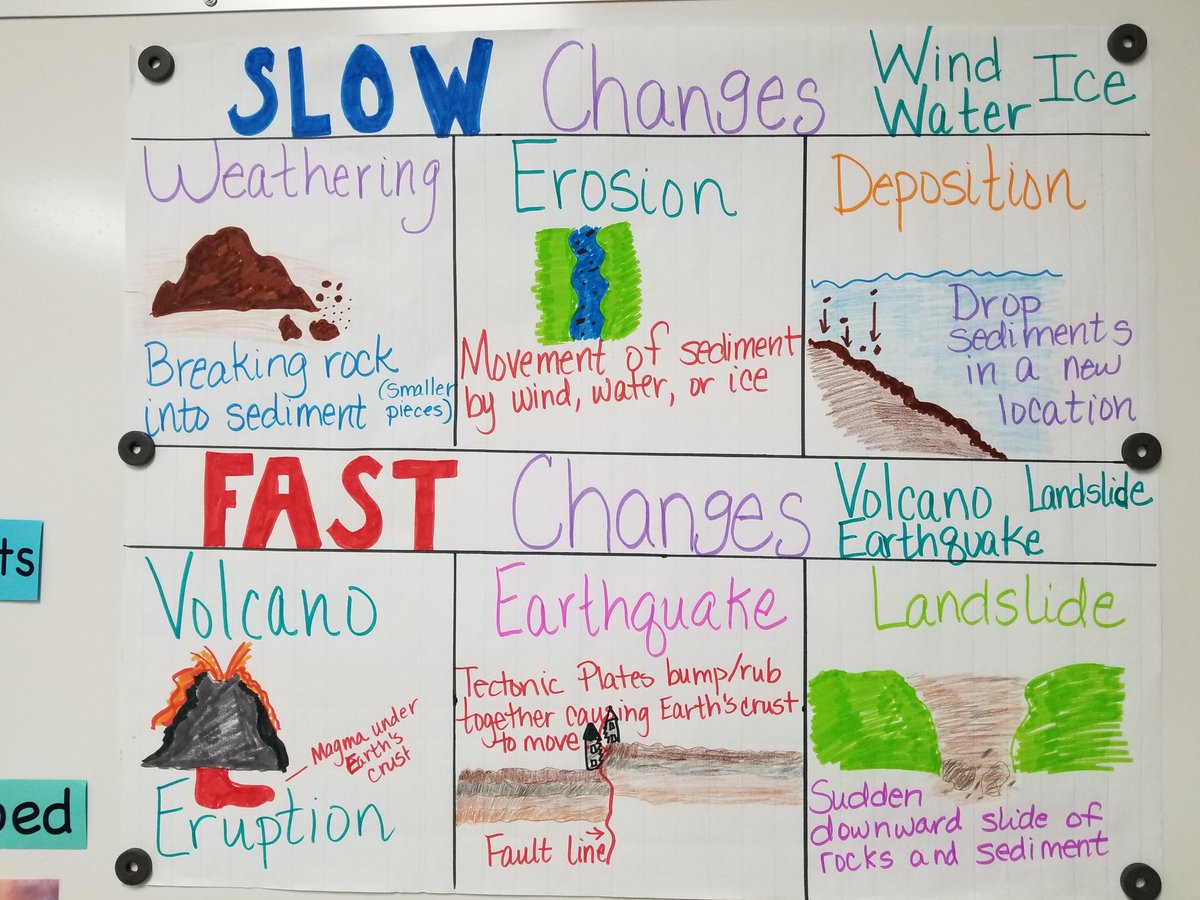 SLOW Changes
Wind Ice
Water
Weathering
Breaking rock
into sediment (Smaller
pieces)
Erosion
Movement of sediment
by wind, water, or ice
Deposition
Drop
sediments
in a new
location
FAST Changes
Volcano Landslide
Earthquake
Volcano
Magma under
Earth's
crust
Eruption
Earthquake
Tectonic Plates bump/rub
together causing Earth's crust
to move
Fault line
Landslide
Sudden
downward slide of
rocks and sediment
ts
ped